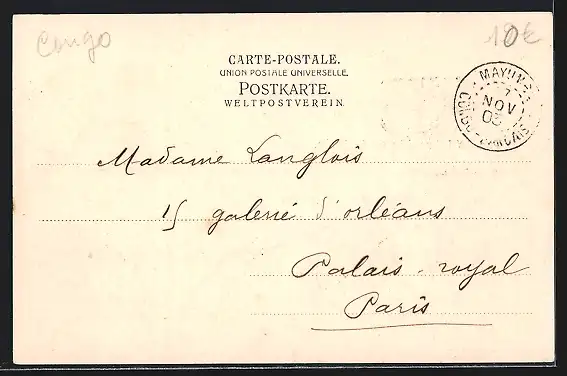 Congo
18€
CARTE-POSTALE.
UNION POSTALE UNIVERSELLE.
POSTKARTE.
WELTPOSTVEREIN.
7
NOV
03
CONGO-FRANÇAIS
Madame Langlois
15 galerie d'orléans
Palais-royal
Paris